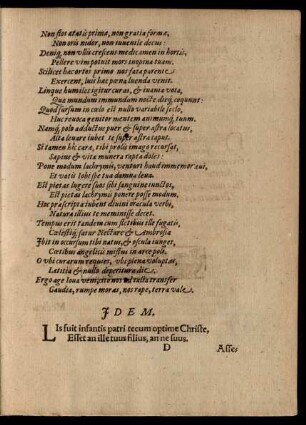 Non flos ætatis primæ, non gratia formæ,
Non oris nidor, non iuuenile decus:
Deniq; non vllis crescens medicamen in hortis,
Pellere vim potuit mors inopina tuam.
Scilicet hac sortes primo nos fata parente
Exercent, luis hac pœna luenda venit.
Linque humiles igitur curas, & inania vota,
Quæ mundum immundum nocte dieq; coquunt:
Quod sursum in cœlo est nullo variabile seclo,
Huc reuoca genitor mentem animumq; tuum.
Namq; polo adductus puer & super astra locatus,
Alta leuare iubet te super astra caput.
Si tamen hic cara, tibi prolis imago recursat,
Sæpius & vitæ munera rapta doles:
Pone modum lachrymis, venturi haud immemor æui,
Et vatis tobi spe tua damna leua.
Est pietas lugere suos sibi sanguine iunctos,
Est pietas lachrymis ponere posse modum.
Hoc præscripta iubent diuini oracula verbi,
Natura illius te meminisse decet.
Tempus erit tandem cum fletibus ille fugatis,
Cœlestiq; satur Nectare & Ambrosia
Ibit in occursum tibi natus, & oscula iunget,
Cœtibus angelicis mistus in arce poli.
O vbi curarum requies, vbi plena voluptas,
Lætitia & nullo deperitura die.
Ergo age Ioua veni, nos intacta transfer
Gaudia, rumpe moras, nos rape, terra vale.
IDEM.
Lis fuit infantis patri tecum optime Christe,
Esset an ille tuus filius, an ne suus.
D Asses